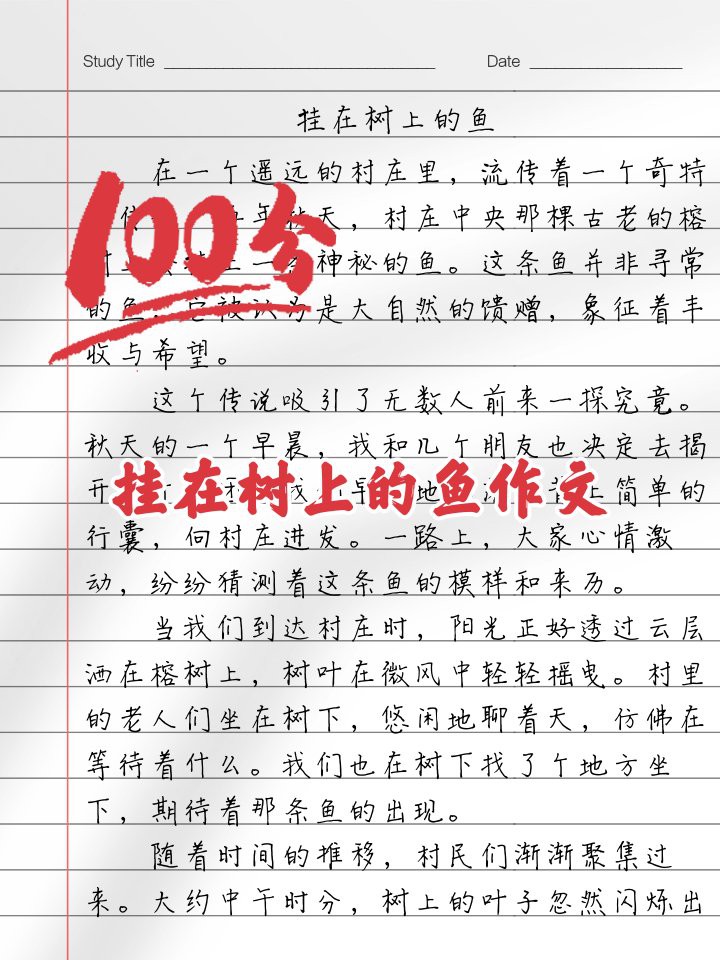 Study Title
Date
挂在树上的鱼
在一个遥远的村庄里，流传着一个奇特
年秋天，村庄中央那棵古老的榕
神秘的鱼。这条鱼并非寻常
的鱼，它被认为是大自然的馈赠，象征着丰
收与希望。
100分
这个传说吸引了无数人前来一探究竟。
秋天的一个早晨，我和几个朋友也决定去揭
开 早 地 上简单的
挂在树上的鱼作文
行囊，向村庄进发。一路上，大家心情激
动，纷纷猜测着这条鱼的模样和来历。
当我们到达村庄时，阳光正好透过云层
洒在榕树上，树叶在微风中轻轻摇曳。村里
的老人们坐在树下，悠闲地聊着天，仿佛在
等待着什么。我们也在树下找了个地方坐
下，期待着那条鱼的出现。
随着时间的推移，村民们渐渐聚集过
来。大约中午时分，树上的叶子忽然闪烁出